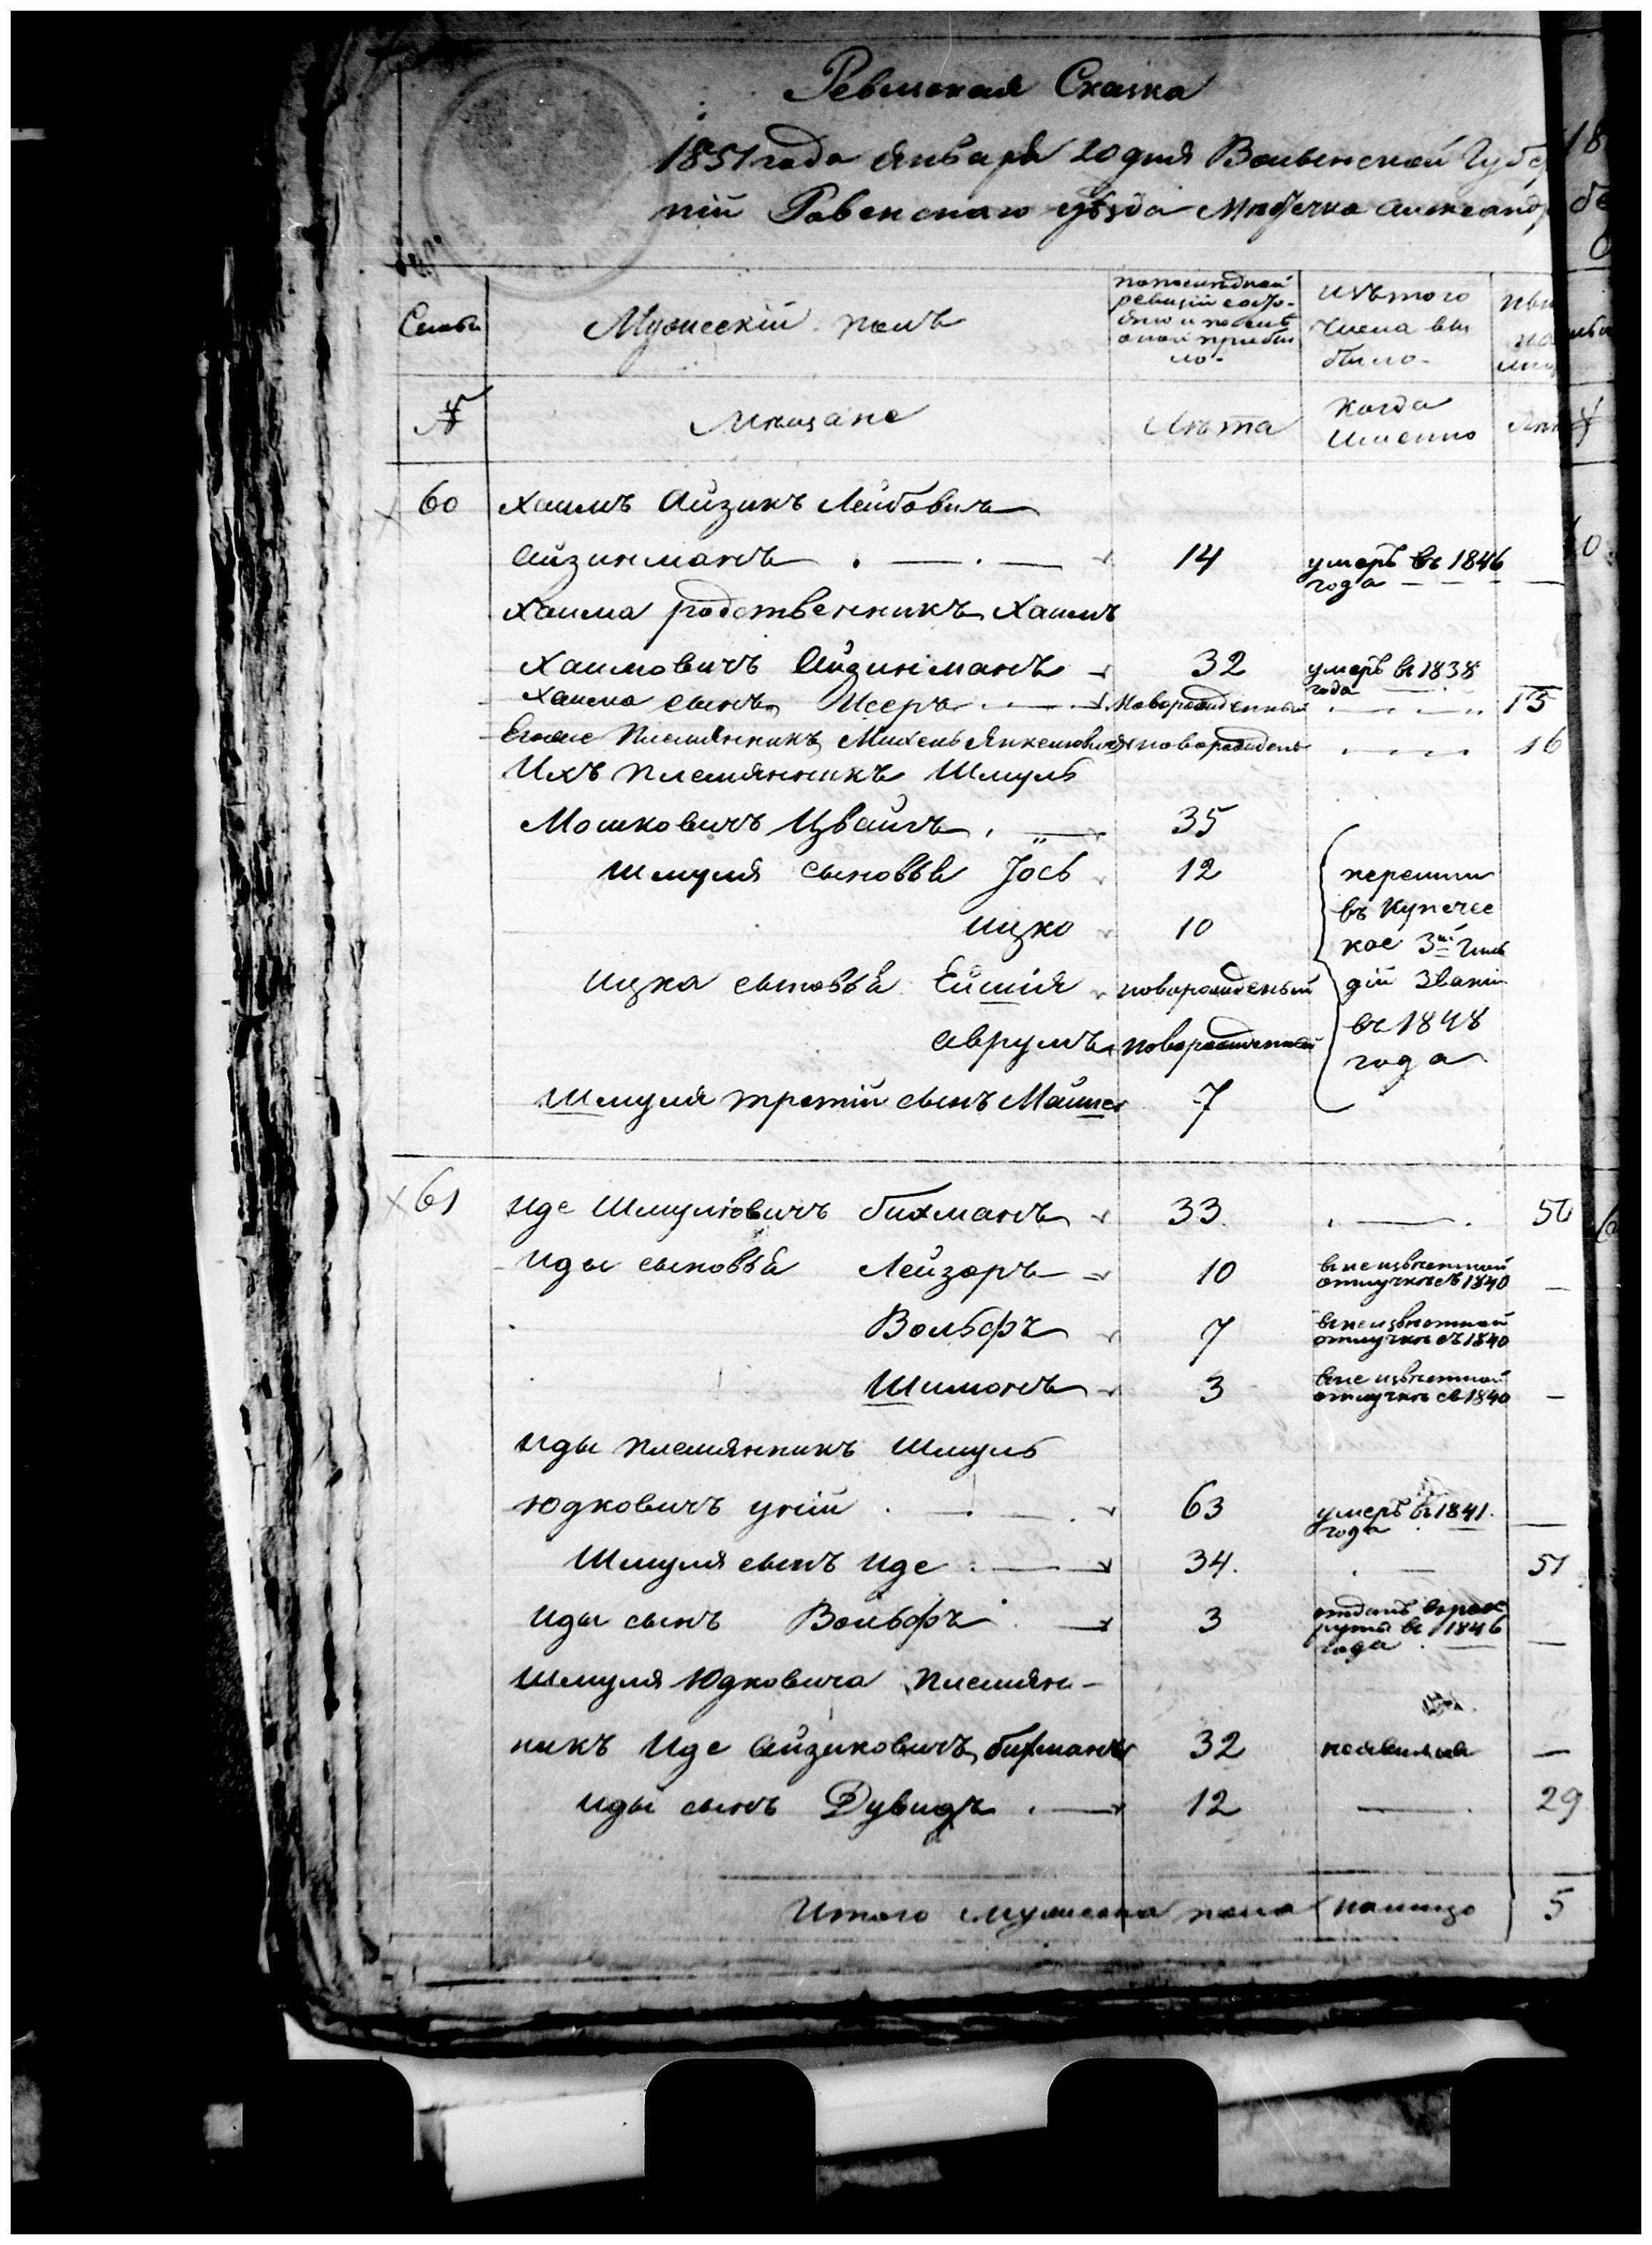 Ревизская Сказка
1851 года Января 20 дня Волынской Губер
ній Ровенскаго уѣзда Мѣстечка Александр
Семьи
Мужескій полъ
по последней
ревизій состо-
яло и послѣ
оной прибы
ло.
Изъ того
числа вы
было.
№
Мѣщане
Лѣта
Когда
Именно
60 Хаимъ Айзикъ Лейбовичъ
Айзинманъ 14 умеръ въ 1846
года
Хаима родственникъ Хаимъ
Хаимовичъ Айзинманъ 32 умеръ въ 1838
года
Хаима сынъ Исеръ Новорожденный 15
Егоже Племянникъ Михель Янкелювичъ новорожденъ 16
Ихъ племянникъ Шмуль
Мошковичъ Цвайгъ 35
Шмуля сыновья Іось 12
Ицко 10
Ицка сыновья Ейшія новорожденый
Аврумъ новорожденный
Шмуля третій сынъ 7
перешли
въ Купечес
кое 3й Гиль
дій Званіи
въ 1848
года
61 Иде Шмулювичъ бихманъ 33 50
Иды сыновья Лейзоръ 10 въ неизвѣстной
отлучкѣ съ 1840
Вольфъ 7 въ неизвѣстной
отлучкѣ съ 1840
Шимонъ 3 въ неизвѣстной
отлучкѣ съ 1840
Иды племянникъ Шмуль
Юдковичъ 63 умеръ въ 1841
года
Шмуля сынъ Иде 34 51
Иды сынъ Вольфъ 3 отданъ въ рек
руты въ 1846
года
Шмуля Юдковича Племян-
никъ Иде Айзиковичъ бихманъ 32 неявился
Иды сынъ Дувидъ 12 29
Итого мужеска пола налицо 5